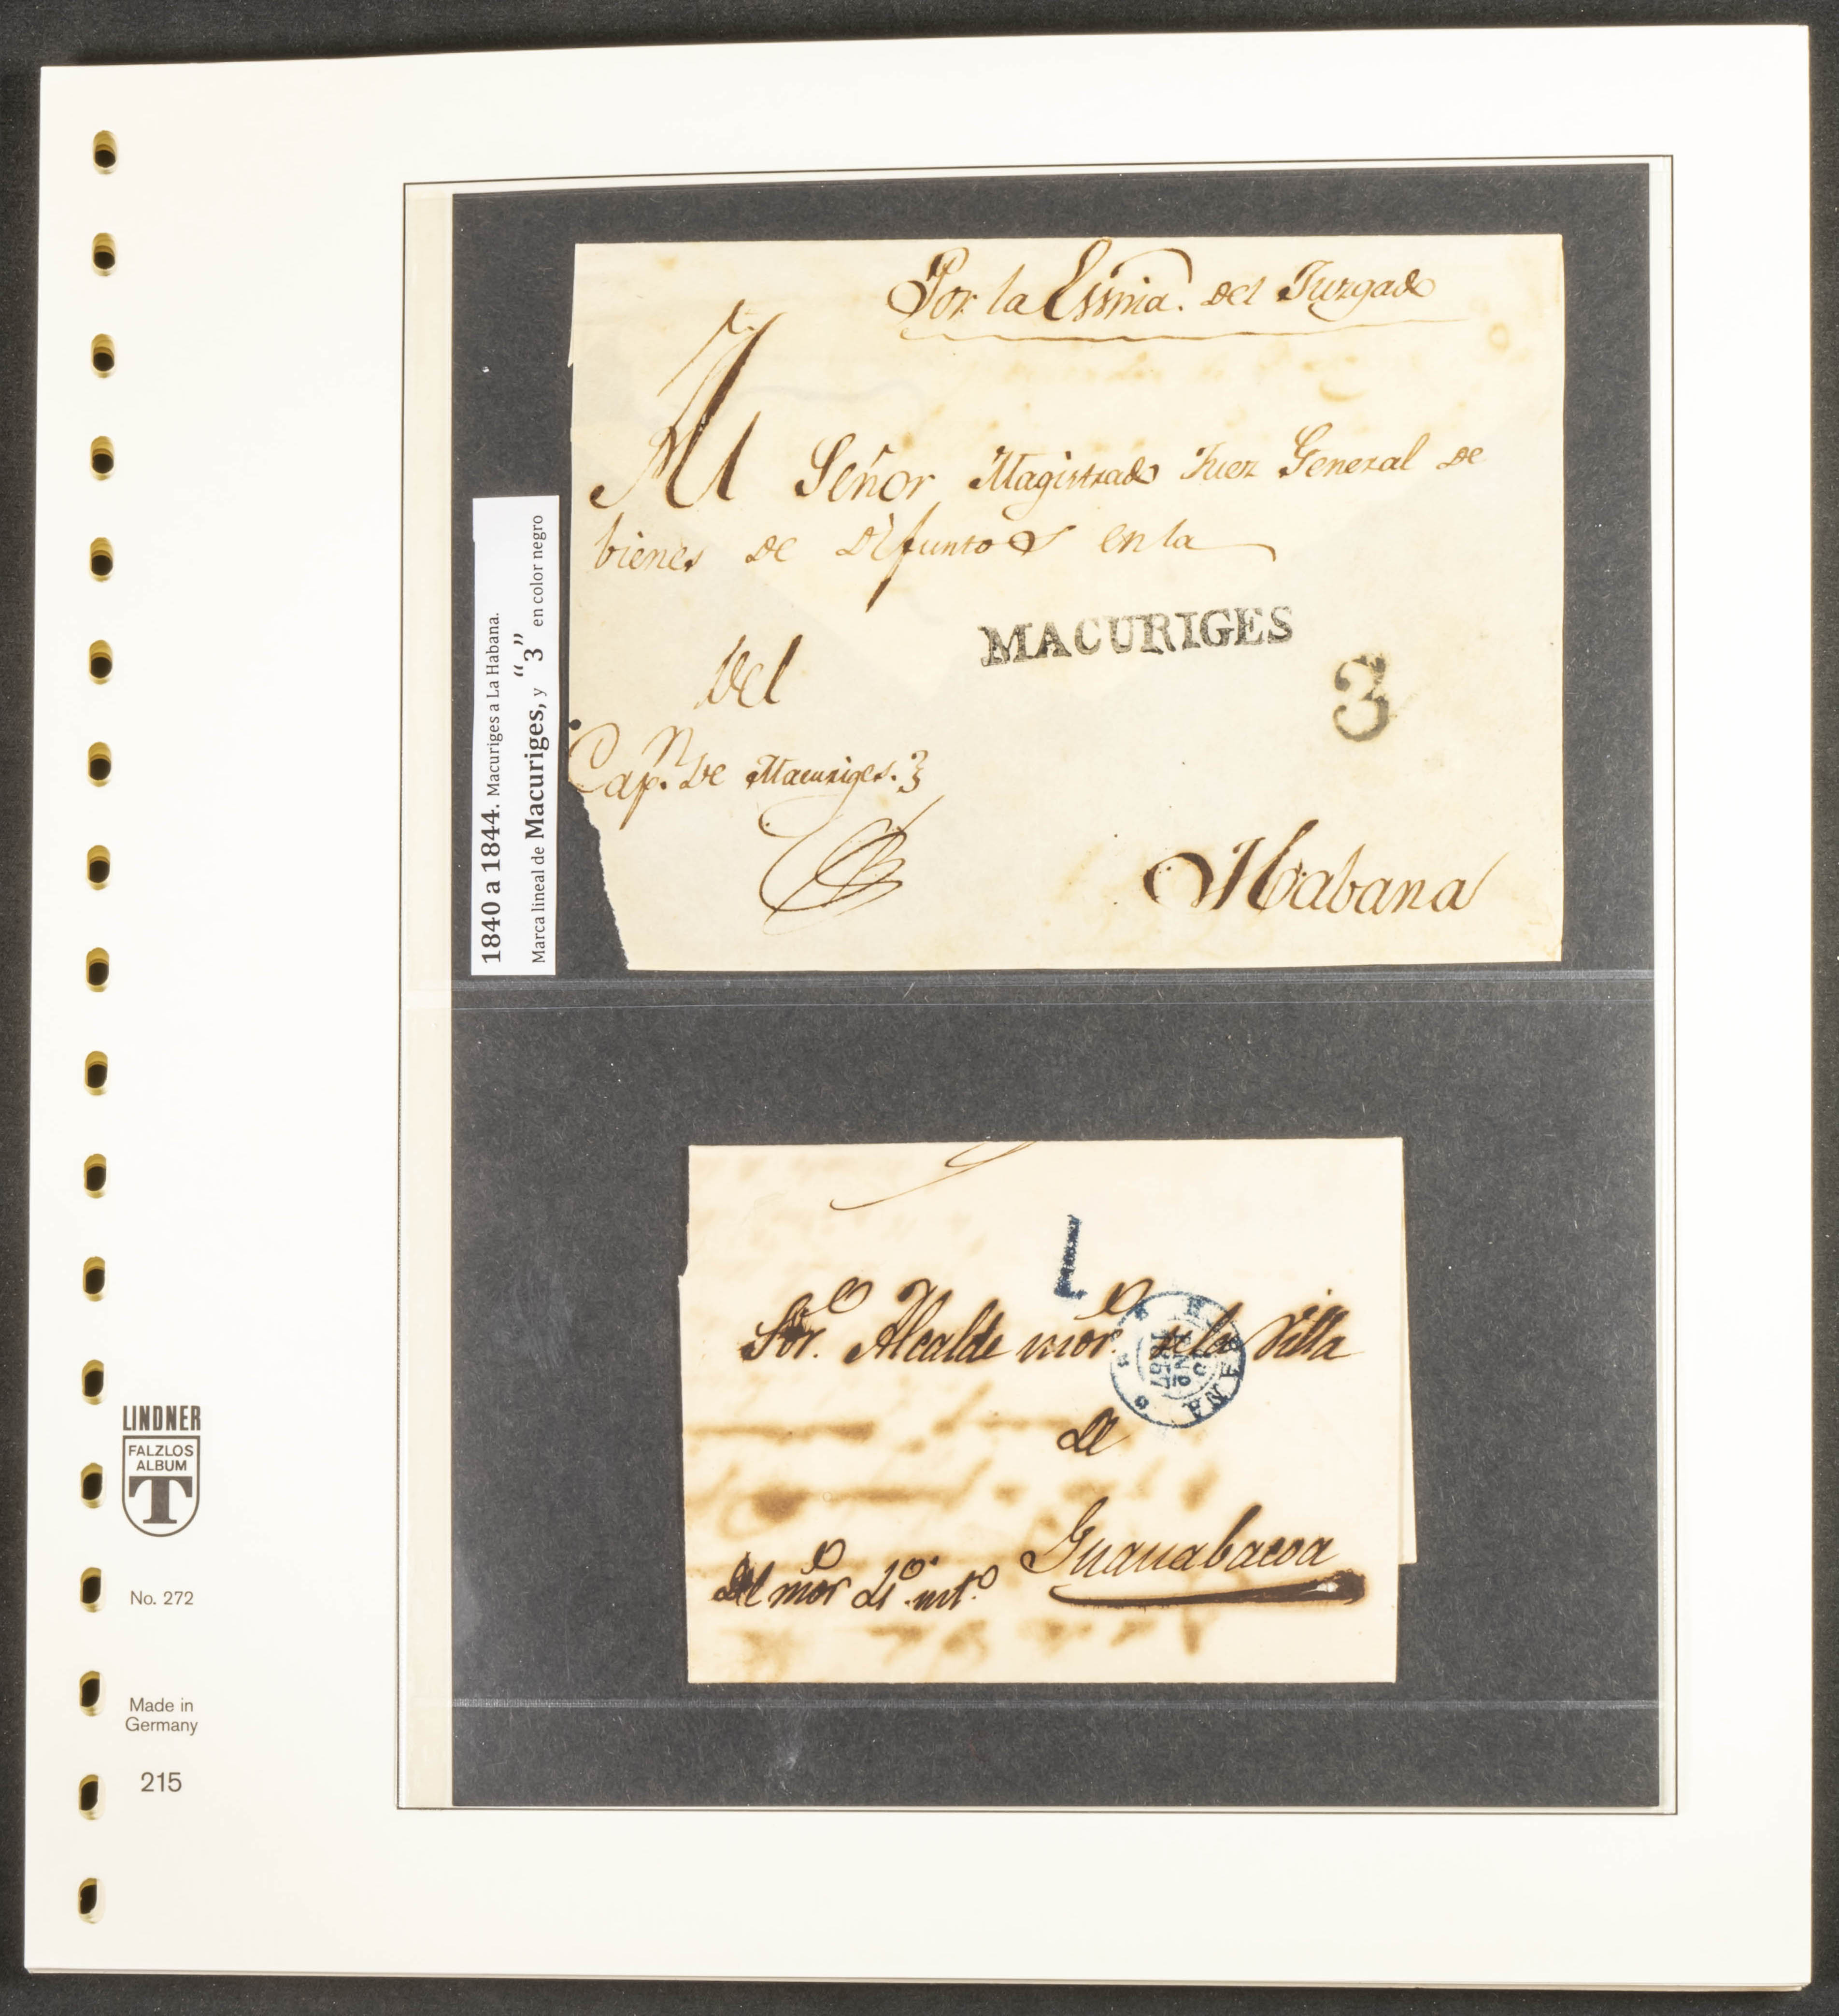 Por la Essnia. del Juzgado
Al Señor Magistrado Juez General de
bienes de Difuntos en la
MACURIGES
3
Del
Capn. de Macuriges.
Habana
1840 a 1844. Macuriges a La Habana.
Marca lineal de Macuriges, y “3” en color negro
1
Sor. Alcalde mor. de la Villa
de
Guanabacoa
LINDNER
FALZLOS
ALBUM
T
No. 272
Made in
Germany
215